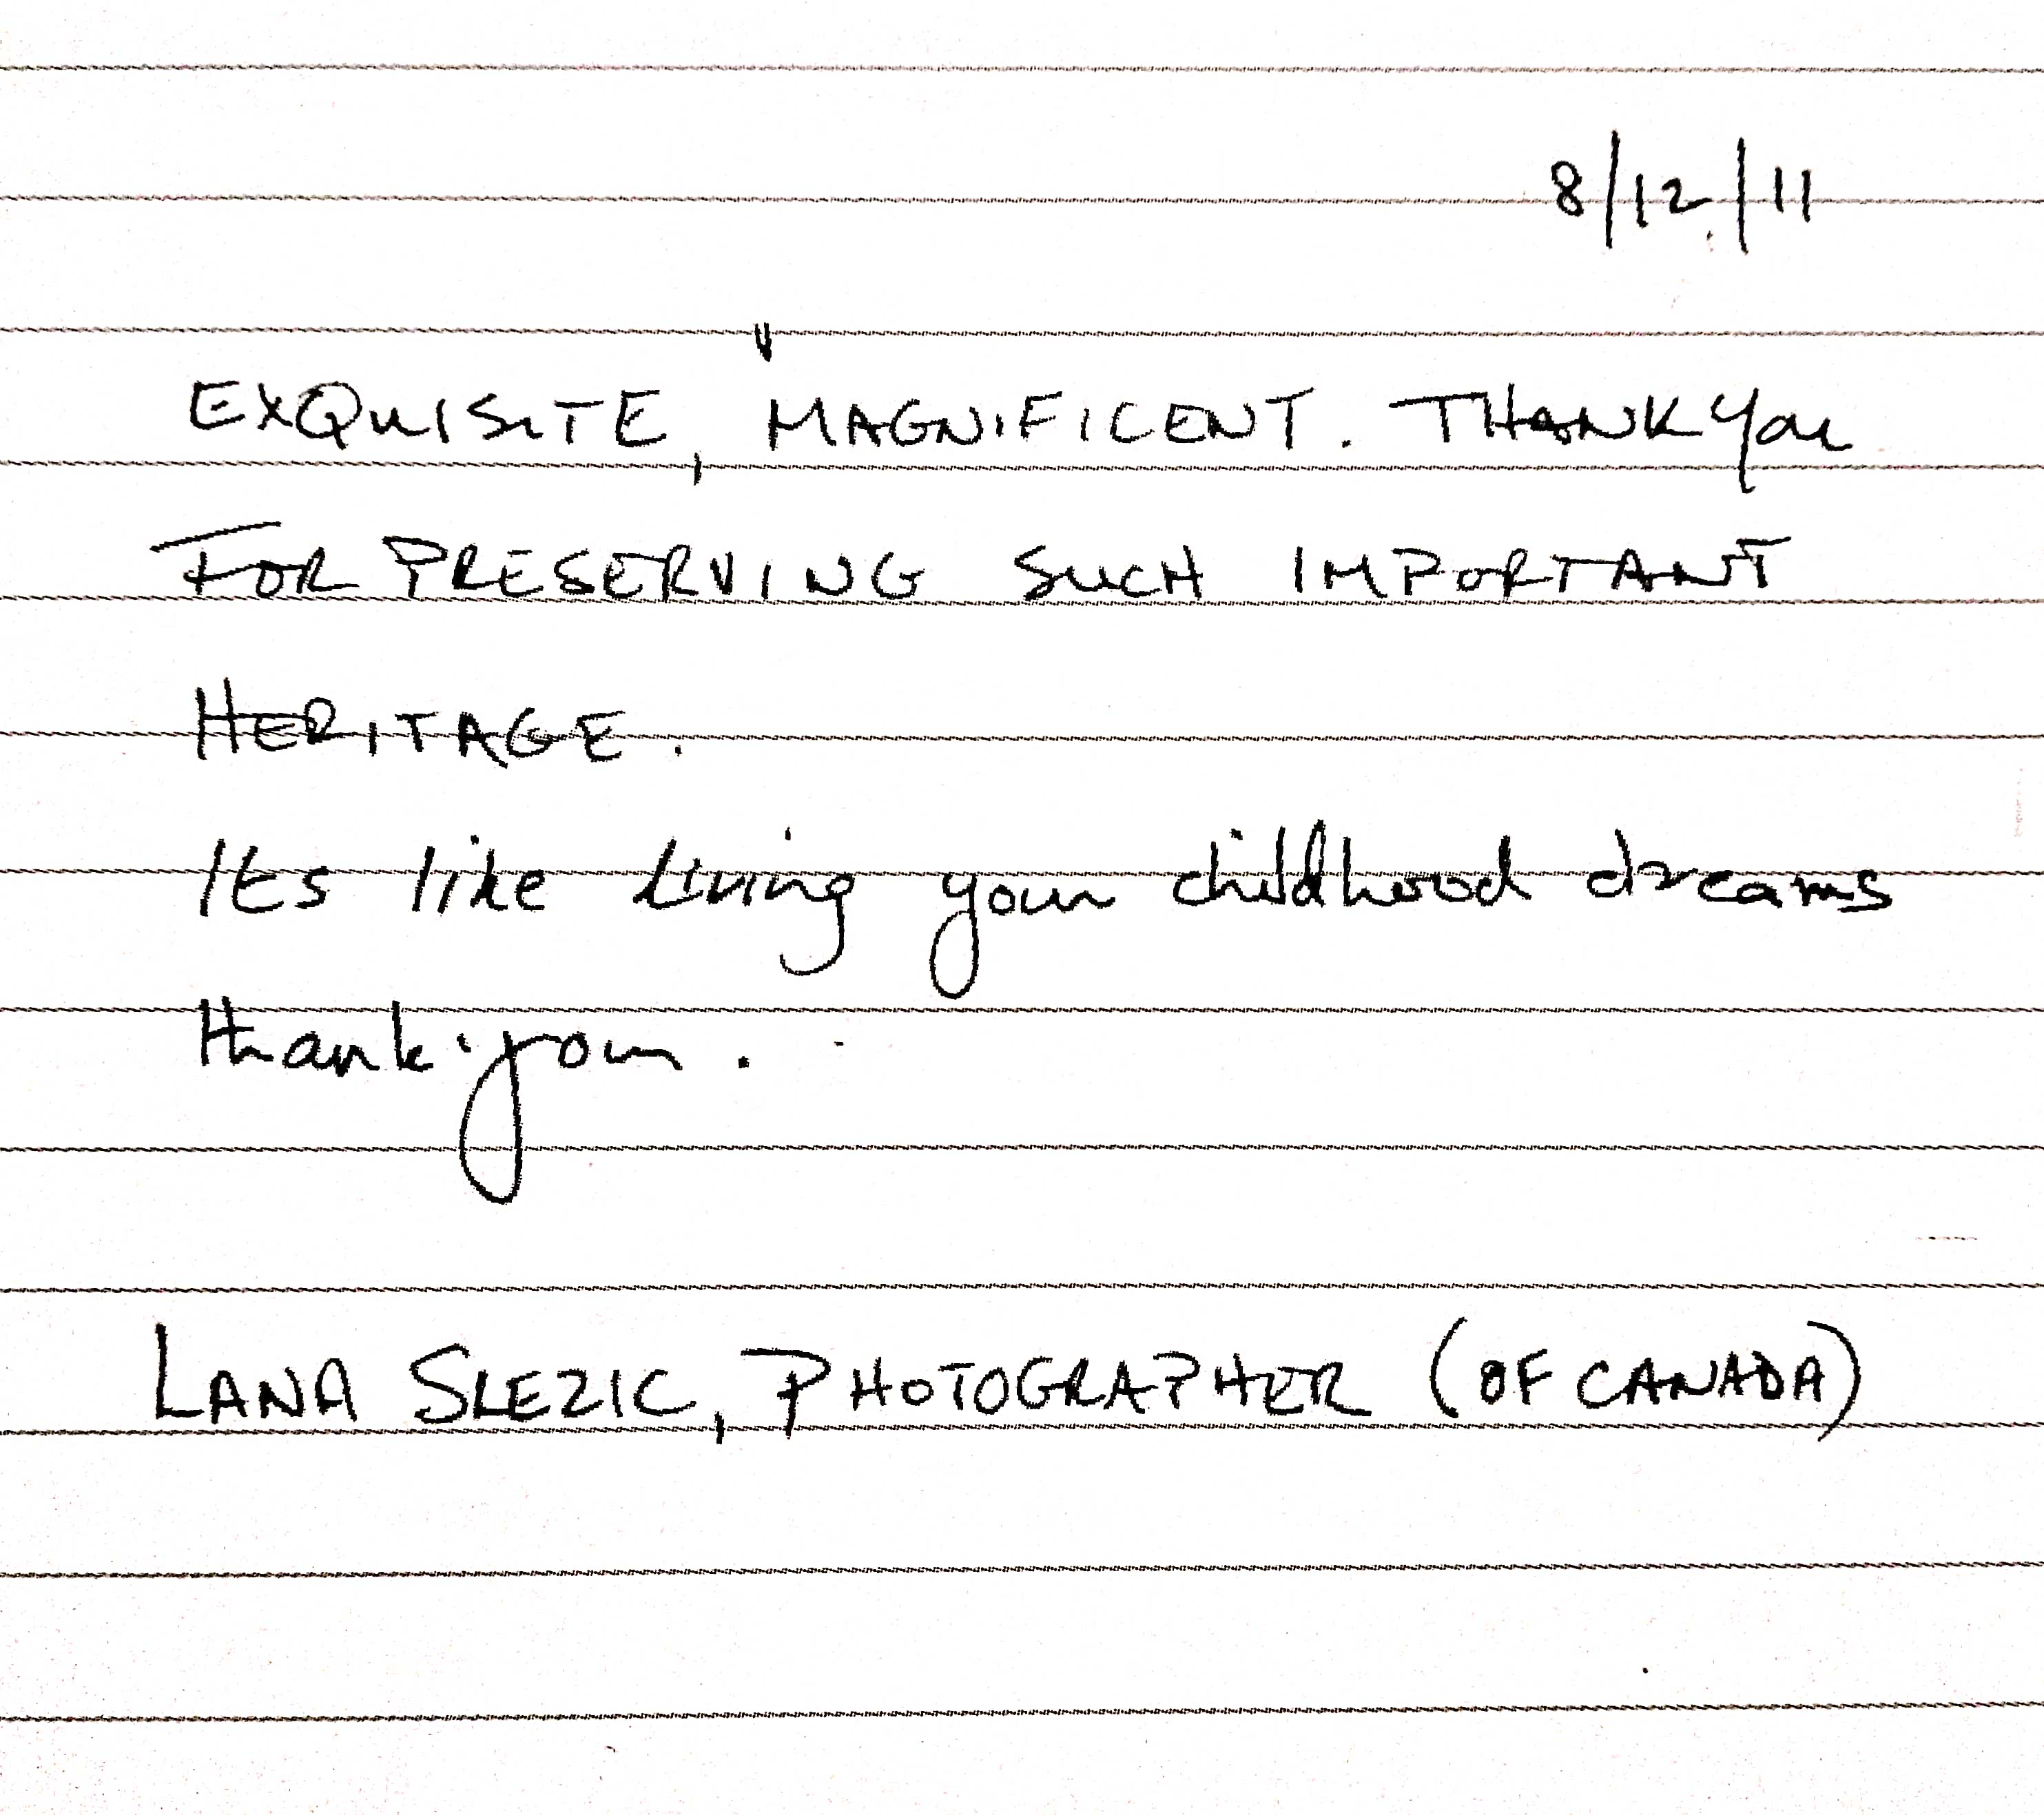 8/12/11
EXQUISITE, MAGNIFICENT. THANK You
FOR PRESERVING SUCH IMPORTANT
HERITAGE.
Its like living your childhood dreams
thank you.
LANA SLEZIC, PHOTOGRAPHER (OF CANADA)